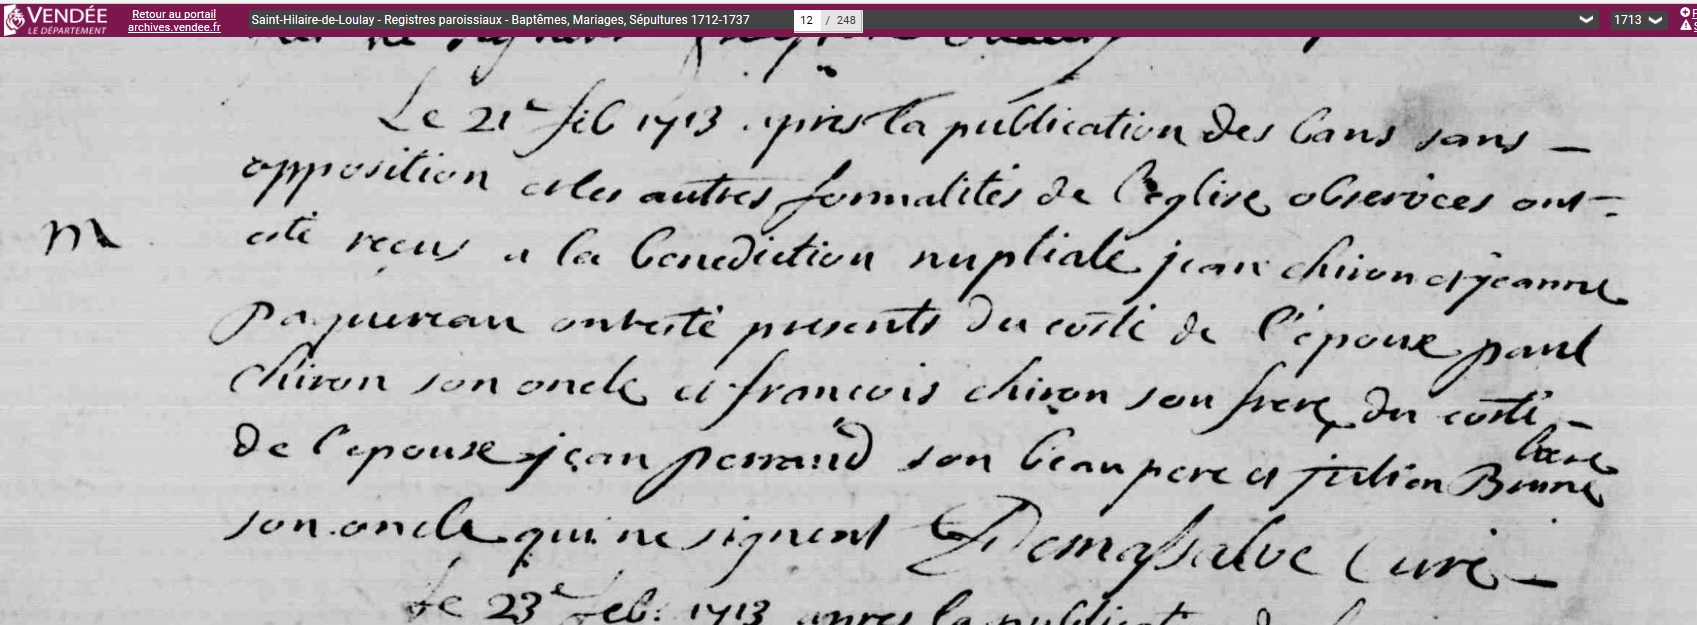 VENDÉE
LE DÉPARTEMENT
Retour au portail
archives.vendee.fr
Saint-Hilaire-de-Loulay - Registres paroissiaux - Baptêmes, Mariages, Sépultures 1712-1737
12 / 248
1713
Le 21e feb 1713 apres la publication des bans sans
opposition et les autres formalités de l'eglise observées ont
M
esté recus a la benediction nuptiale jean chiron et jeanne
paquereau ont esté presents du costé de l'epoux paul
chiron son oncle et francois chiron son frere du costé
de l'epouse jean perraud son beau pere et julien
son oncle qui ne signent Demassalve Curé
Le 23e feb: 1713 apres la publicat de